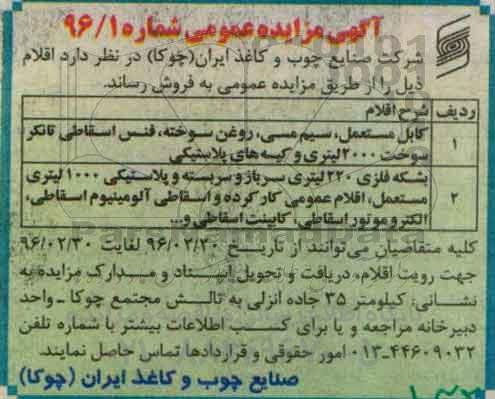 آگهی مزایده عمومی شماره ۹۶/۱
شرکت صنایع چوب و کاغذ ایران(چوکا) در نظر دارد اقلام
ذیل را از طریق مزایده عمومی به فروش رساند.
ردیف شرح اقلام
۱ کابل مستعمل، سیم مسی، روغن سوخته، قنس اسقاطی تانکر
سوخت ۲۰۰۰ لیتری و کیسه های پلاستیکی
بشکه فلزی ۲۲۰ لیتری سرباز و سربسته و پلاستیکی ۱۰۰۰ لیتری
۲ مستعمل، اقلام عمومی کارکرده و اسقاطی آلومینیوم اسقاطی،
الکتروموتور اسقاطی، کابینت اسقاطی و...
کلیه متقاضیان می توانند از تاریخ ۹۶/۰۲/۲۰ لغایت ۹۶/۰۲/۳۰
جهت رویت اقلام، دریافت و تحویل اسناد و مدارک مزایده به
نشانی: کیلومتر ۳۵ جاده انزلی به تالش مجتمع چوکا ـ واحد
دبیرخانه مراجعه و یا برای کسب اطلاعات بیشتر با شماره تلفن
۰۱۳-۴۴۶۰۹۰۳۲ امور حقوقی و قراردادها تماس حاصل نمایند.
صنایع چوب و کاغذ ایران (چوکا)